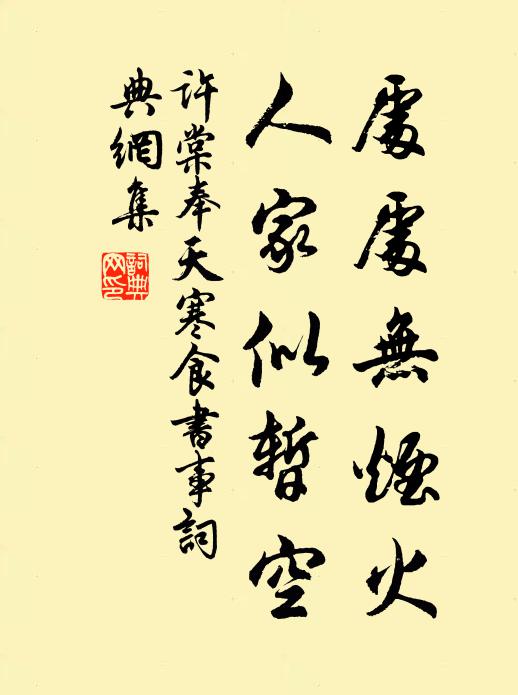 處處無煙火
人家似暫空
許棠奉天寒食書事詞
典網集
詞典網印